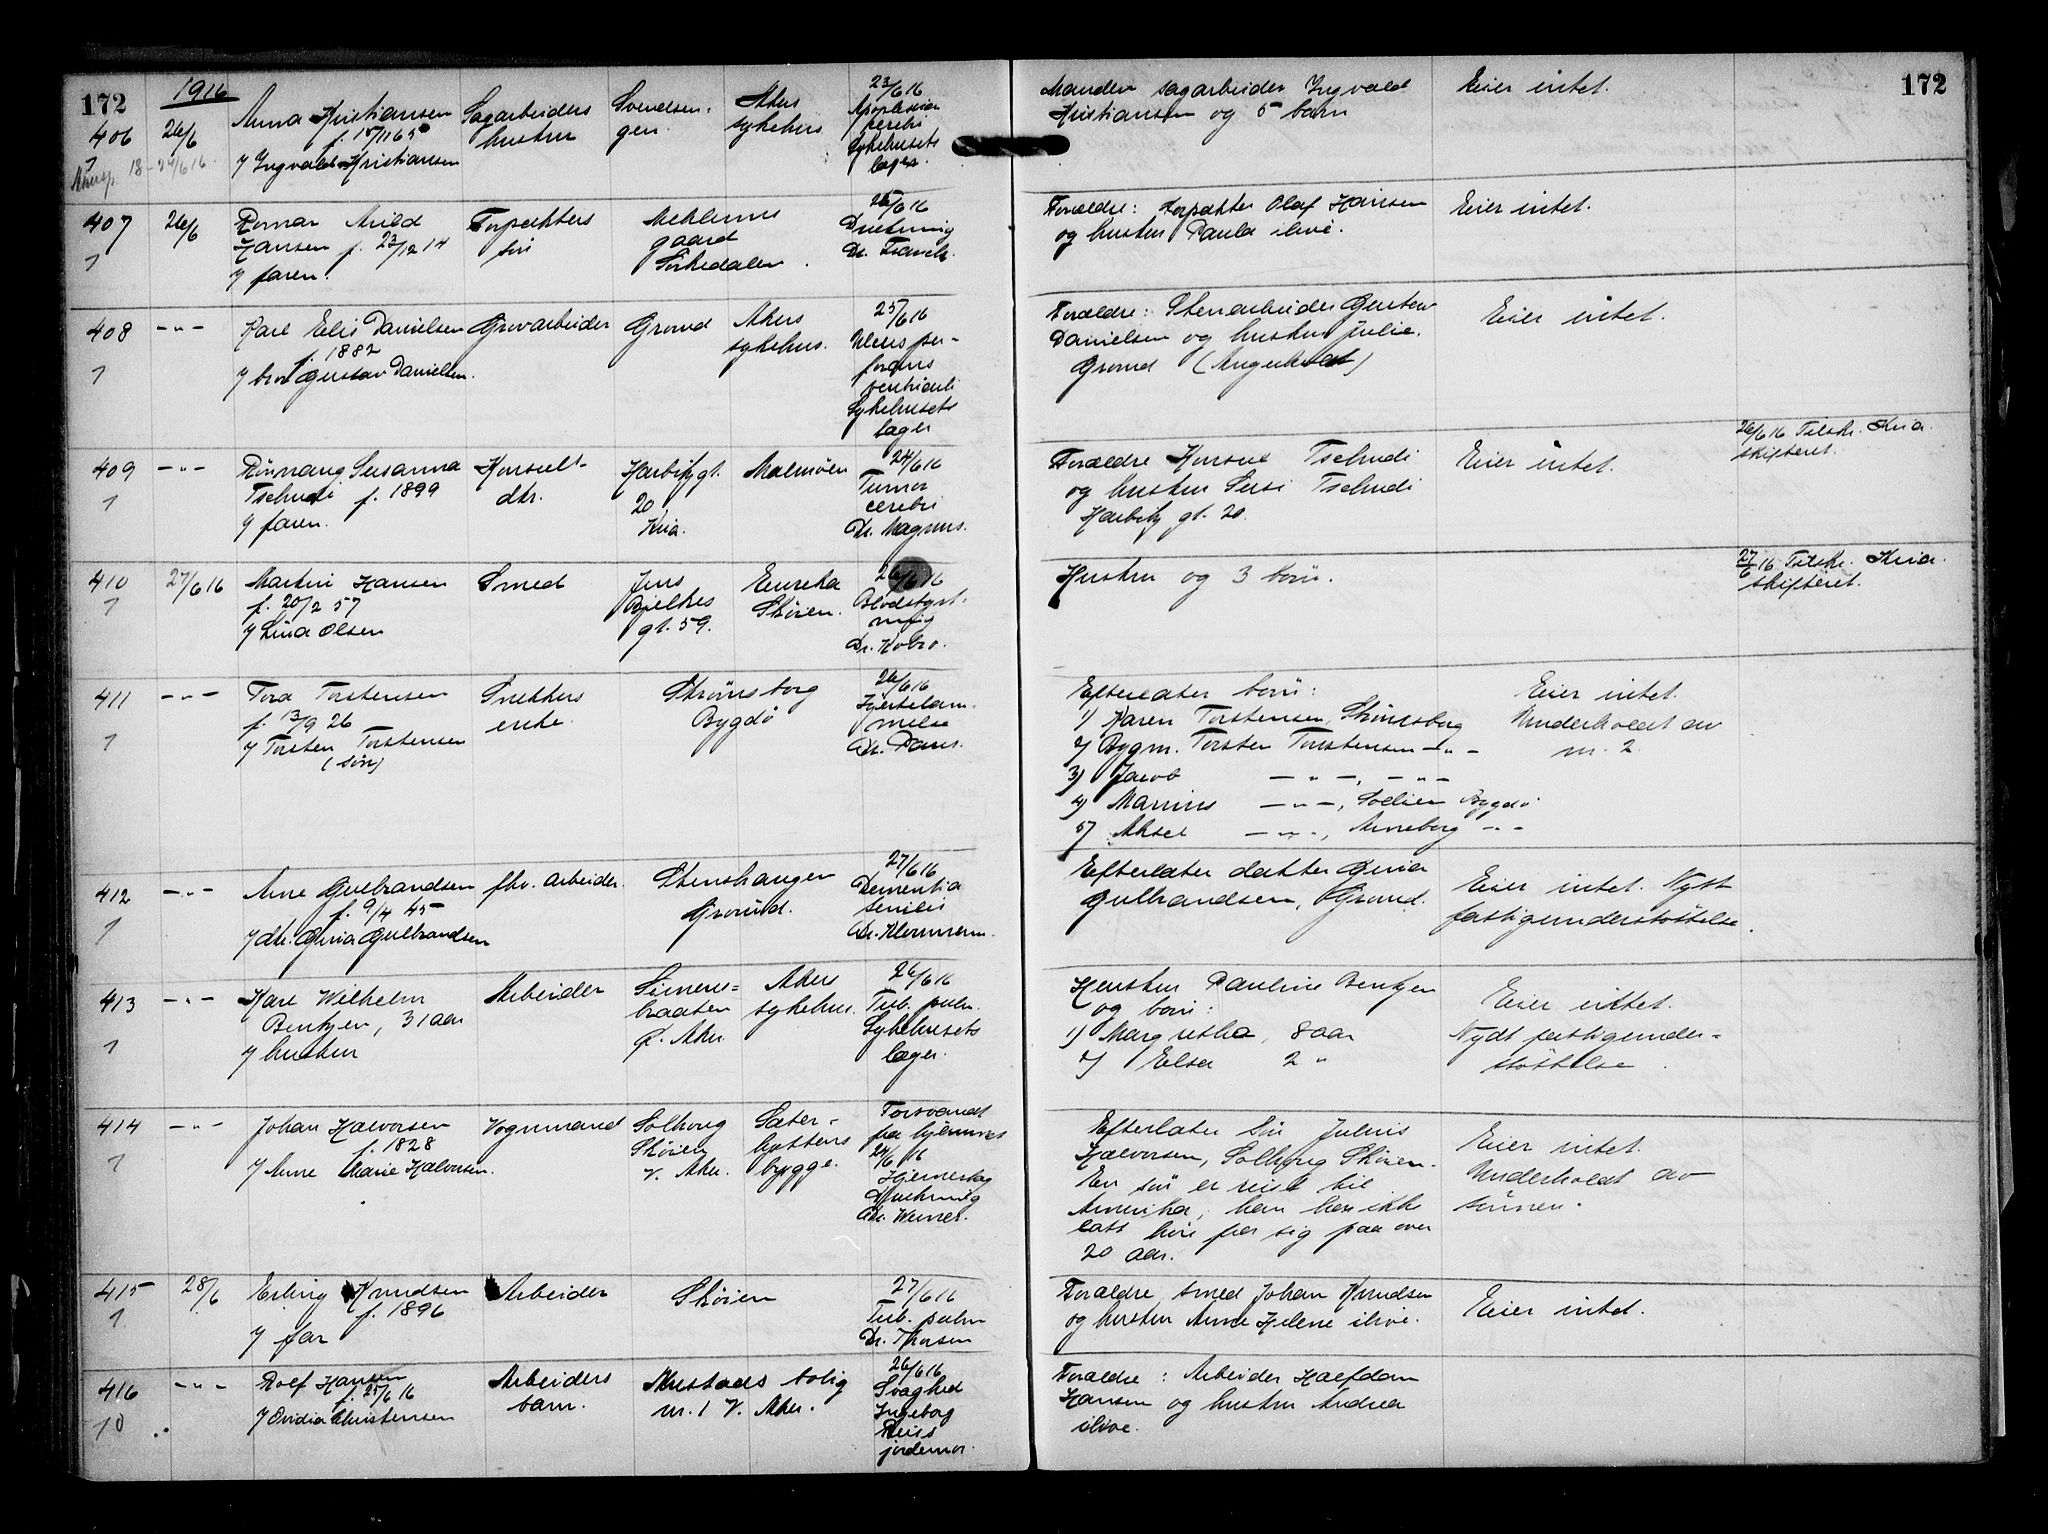 172
1916
172
406
26/6
Anna Kristiansen
f. 15/11 65
7 Ingvald Kristiansen
Sagarbeiders
hustru
Svendsen-
gen.
Akers
sykehus
23/6 16
Apoplexia
cerebri
Sykehusets
læge.
Manden sagarbeider Ingvald
Kristiansen og 5 barn
Eier intet.
18-24/6 16.
407
26/6
Arild
Hansen f. 23/12 14
7 faren.
Forpakters
søn
gaard
Sørkedalen.
25/6 16
Drukning
Dr.
Forældre: Forpakter Olaf Hansen
og hustru Paula ilive.
Eier intet.
408
— " —
Karl Elis Danielsen
f. 1882
7 bror Gustav Danielsen.
Grovarbeider
Grorud
Akers
sykehus.
25/6 16
Ulcus per-
forans
ventriculi
Sykehusets
læge
Forældre: Stenarbeider Gustav
Danielsen og hustru Julie.
Grorud
Eier intet.
409
— " —
Rønnaug Susanna
Tschudi f. 1899
7 faren.
Konsuls
dtr.
Harbitzgt.
20
Kria.
Malmøen
24/6 16
Tumor
cerebri
Dr. Magnus.
Forældre Konsul Tschudi
og hustru Susi Tschudi
Harbitz gt. 20.
Eier intet.
26/6 16 Tilskr. Kria.
skifteret.
410
27/6 16
Martin Hansen
f. 20/2 57
7 Lina Olsen
Smed
Jens
Bjelkes
gt. 59.
Eureka
Skøien.
26/6 16
Blodstyrt-
ning
Dr. Kobro.
Hustru og 3 børn.
27/6 16 Tilskr. Kria.
skifteret.
411
— " —
Tora Torstensen
f. 13/9 26
7 Torsten Torstensen
(søn)
Snekkers
enke.
Strømsborg
Bygdø
26/6 16
Hjertelam-
melse
Dr. Paus.
Efterlater børn:
1) Karen Torstensen, Strømsborg
2) Bygm. Torsten Torstensen — " —
3) Jacob — " —, — " —
4) Marius — " —, Sollien Bygdø
5) Aksel — " —, Anneborg — " —
Eier intet.
Underholdt av
nr. 2.
412
— " —
Arne Gulbrandsen
f. 9/4 45
7 dtr. Gina Gulbrandsen
fhv. arbeider.
Stenshaugen
Grorud.
27/6 16
Dementia
senilis
Dr.
Efterlater datter Gina
Gulbrandsen, Grorud.
Eier intet. Nytt
fattigunderstøttelse.
413
— " —
Karl Wilhelm
Bentzen, 31 aar
7 hustru
Arbeider
Simens-
braaten
Ø. Aker.
Akers
sykehus.
26/6 16
Tub. pulm.
Sykehusets
læge.
Hustru Pauline Bentzen
og børn:
1) Margretha, 8 aar
2) Elsa 2 "
Eier intet.
Nydt fattigunder-
støttelse.
414
— " —
Johan Halvorsen
f. 1828
7 Anne Marie Halvorsen.
Vognmand
Solhoug
Skøien
V. Aker.
Sæter-
hyttens
brygge.
Forsvandt
fra hjemmet
24/6 16
Drukning
Dr. Werner.
Efterlater søn Julius
Halvorsen, Solhoug Skøien.
En søn er reist til
Amerika, han har ikke
latt høre fra sig paa over
20 aar.
Eier intet.
Underholdt av
sønnen.
415
28/6
Erling Knudsen
f. 1896
7 far
Arbeider
Skøien
27/6 16
Tub. pulm
Dr. Thorsen
Forældre, smed Johan Knudsen
og hustru Anne Helene ilive.
Eier intet.
416
— " —
Rolf Hansen
f. 25/6 16
7 Ovidia Christensen
Arbeiders
barn.
Mustads bolig
nr. 1 V. Aker.
26/6 16
Svaghed
Ingeborg
Reiss
jordemor.
Forældre: Arbeider Halfdan
Hansen og hustru Andrea
ilive.